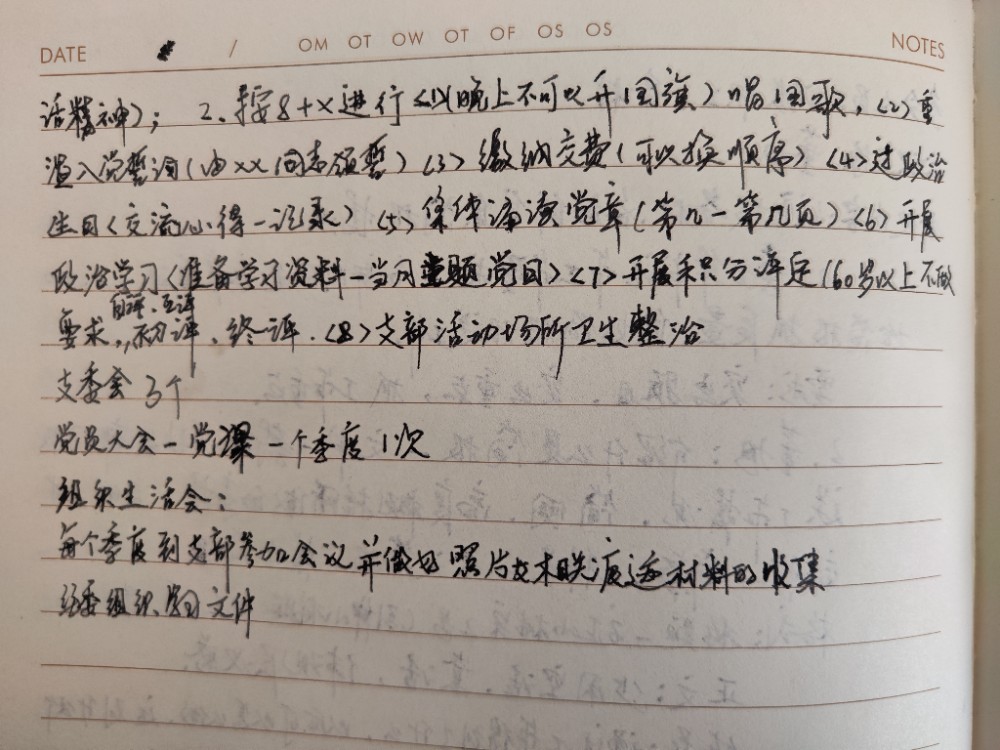 DATE / OM OT OW OT OF OS OS NOTES
话精神）； 2、按8+X进行<1>（晚上不可以开国旗）唱国歌，<2>重
温入党誓词（由xx同志领誓）<3>缴纳党费（可以换顺序）<4>过政治
生日（交流心得-记录）<5>集体诵读党章（第几-第几页）<6>开展
政治学习（准备学习资料-当月主题党日）<7>开展积分评定（60岁以上不做
自评、互评
要求，初评、终评.<8>支部活动场所卫生整治
支委会 3个
党员大会-党课 一个季度1次
组织生活会：
每个季度到支部参加会议并做好照片及相关痕迹材料的收集
组织学习文件